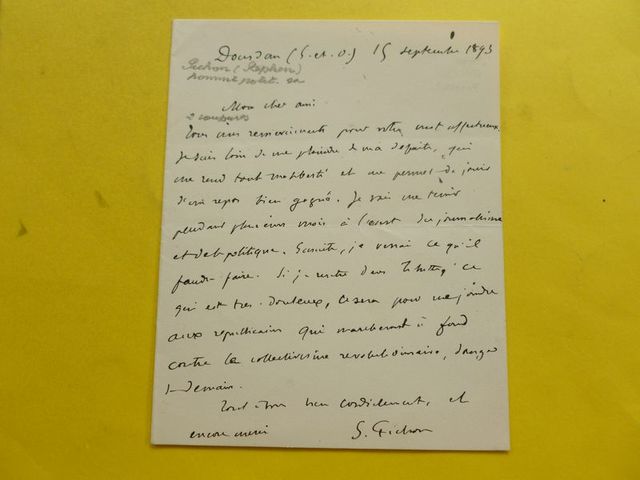 Dourdan (S. et. O.) 15 septembre 1893
Pichon (Stephen)
homme polit.
Mon cher ami
Tous mes remerciements pour votre mot affectueux.
Je suis loin de me plaindre de ma défaite, qui
me rend toute ma liberté et me permet de jouir
d'un repos bien gagné. Je vais me tenir
pendant plusieurs mois à l'écart du journalisme
et de la politique. Ensuite, je verrai ce qu'il
faudra faire. Si je rentre dans la lutte, ce
qui est très douteux, ce sera pour me joindre
aux républicains qui marcheront à fond
contre le collectivisme révolutionnaire, danger
de demain.
Tout à vous bien cordialement, et
encore merci S. Pichon